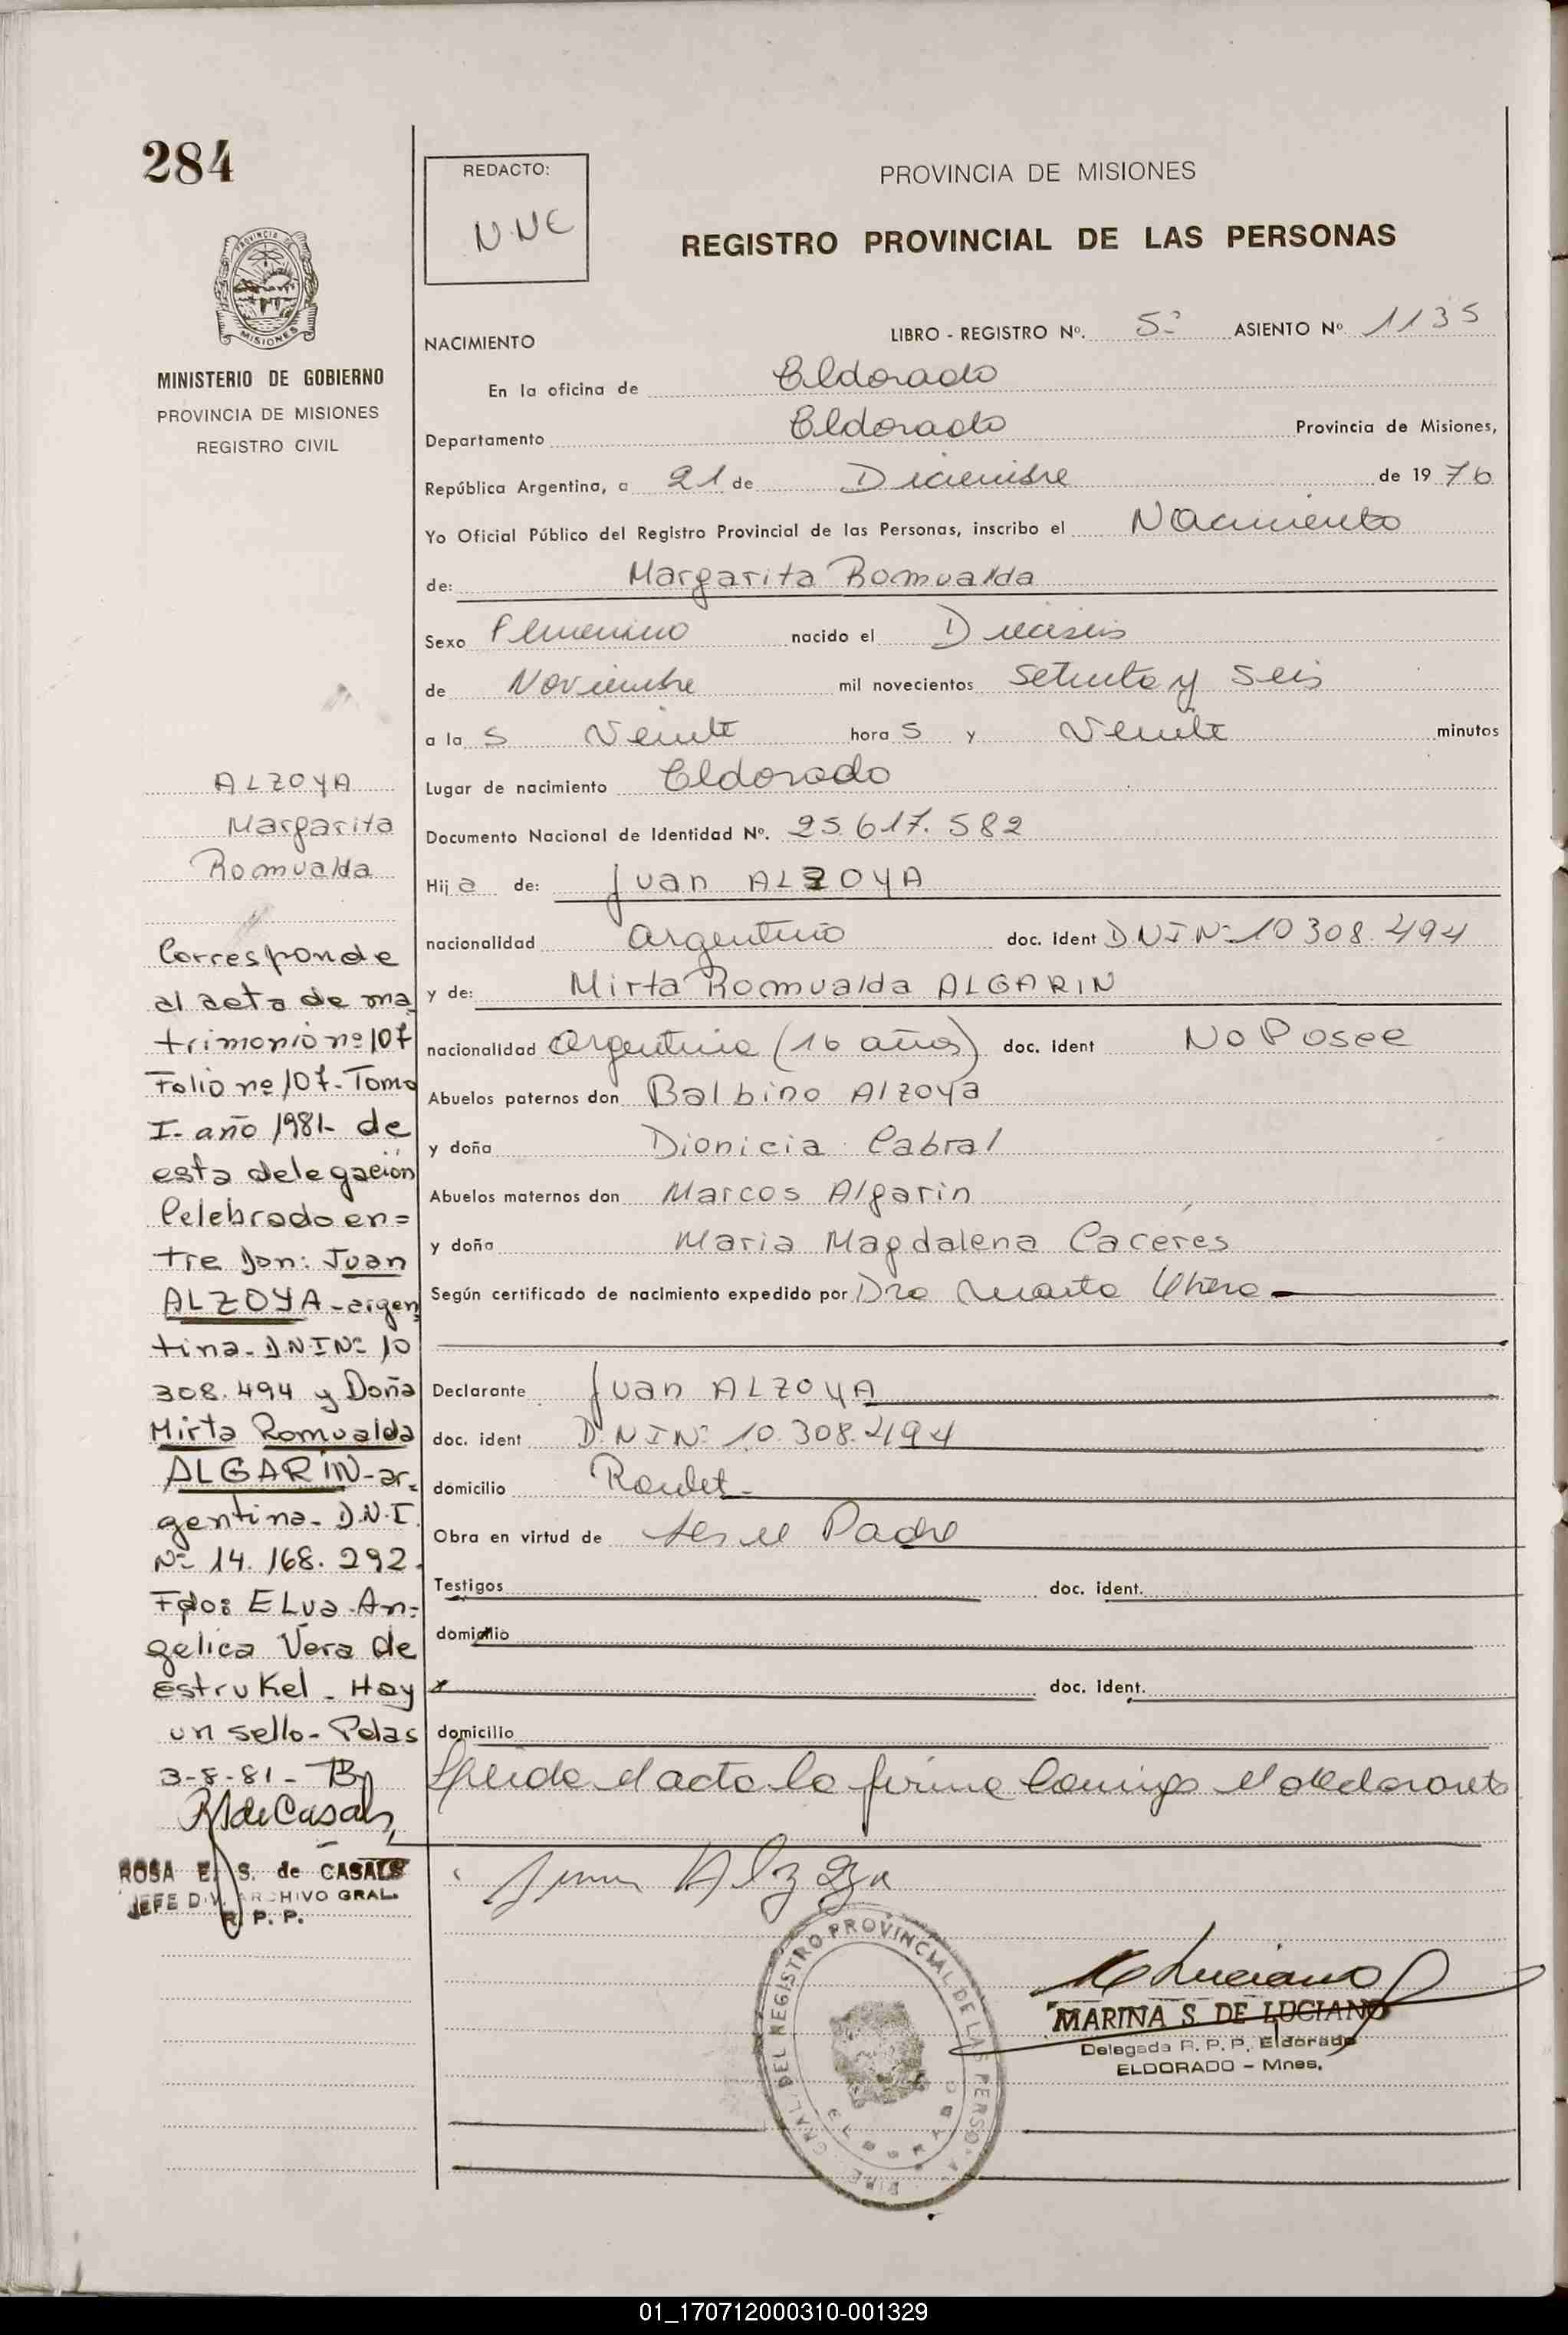 284
PROVINCIA DE
MISIONES
MINISTERIO DE GOBIERNO
PROVINCIA DE MISIONES
REGISTRO CIVIL
ALZOYA
Margarita
Romualda
Corresponde
al acta de ma
trimonio nº 107
Folio nº 107-Tomo
I- año 1981- de
esta delegación
Celebrado en=
tre Don: Juan
ALZOYA-argen
tina-DNI Nº 10
308.494 y Doña
Mirta Romualda
ALGARIN-ar-
gentina-D.N.I.
Nº 14.168.292.
Fdo: ELva An-
gelica Vera de
Estrukel - Hay
un sello- Pdas
3-8-81-
RS de Casals
ROSA E. S. de CASALS
JEFE DIV. ARCHIVO GRAL.
R. P. P.
REDACTO:
N.NC
PROVINCIA DE MISIONES
REGISTRO PROVINCIAL DE LAS PERSONAS
NACIMIENTO LIBRO - REGISTRO Nº. 5º ASIENTO Nº 1135
En la oficina de Eldorado
Departamento Eldorado Provincia de Misiones,
República Argentina, a 21 de Diciembre de 1976
Yo Oficial Público del Registro Provincial de las Personas, inscribo el Nacimiento
de: Margarita Romualda
Sexo Femenino nacido el Dieciseis
de Noviembre mil novecientos setenta y seis
a la s Veinte hora s y Veinte minutos
Lugar de nacimiento Eldorado
Documento Nacional de Identidad Nº. 25.617.582
Hij a de: Juan ALZOYA
nacionalidad argentino doc. ident DNI Nº 10 308.494
y de: Mirta Romualda ALGARIN
nacionalidad argentina (16 años) doc. ident No Posee
Abuelos paternos don Balbino Alzoya
y doña Dionicia Cabral
Abuelos maternos don Marcos Algarin
y doña Maria Magdalena Caceres
Según certificado de nacimiento expedido por Dra Marta
Declarante Juan ALZOYA
doc. ident D.NI Nº 10.308.494
domicilio Roulet
Obra en virtud de ser el Padre
Testigos doc. ident.
domicilio
y doc. ident.
domicilio
Leida el acta la firma conmigo el declarante
Juan Alzoya
DIRE. GRAL. DEL REGISTRO PROVINCIAL DE LAS PERSONAS
ELDORADO
M Luciano
MARINA S. DE LUCIANO
Delegada R. P. P. Eldorado
ELDORADO - Mnes.
01_170712000310-001329